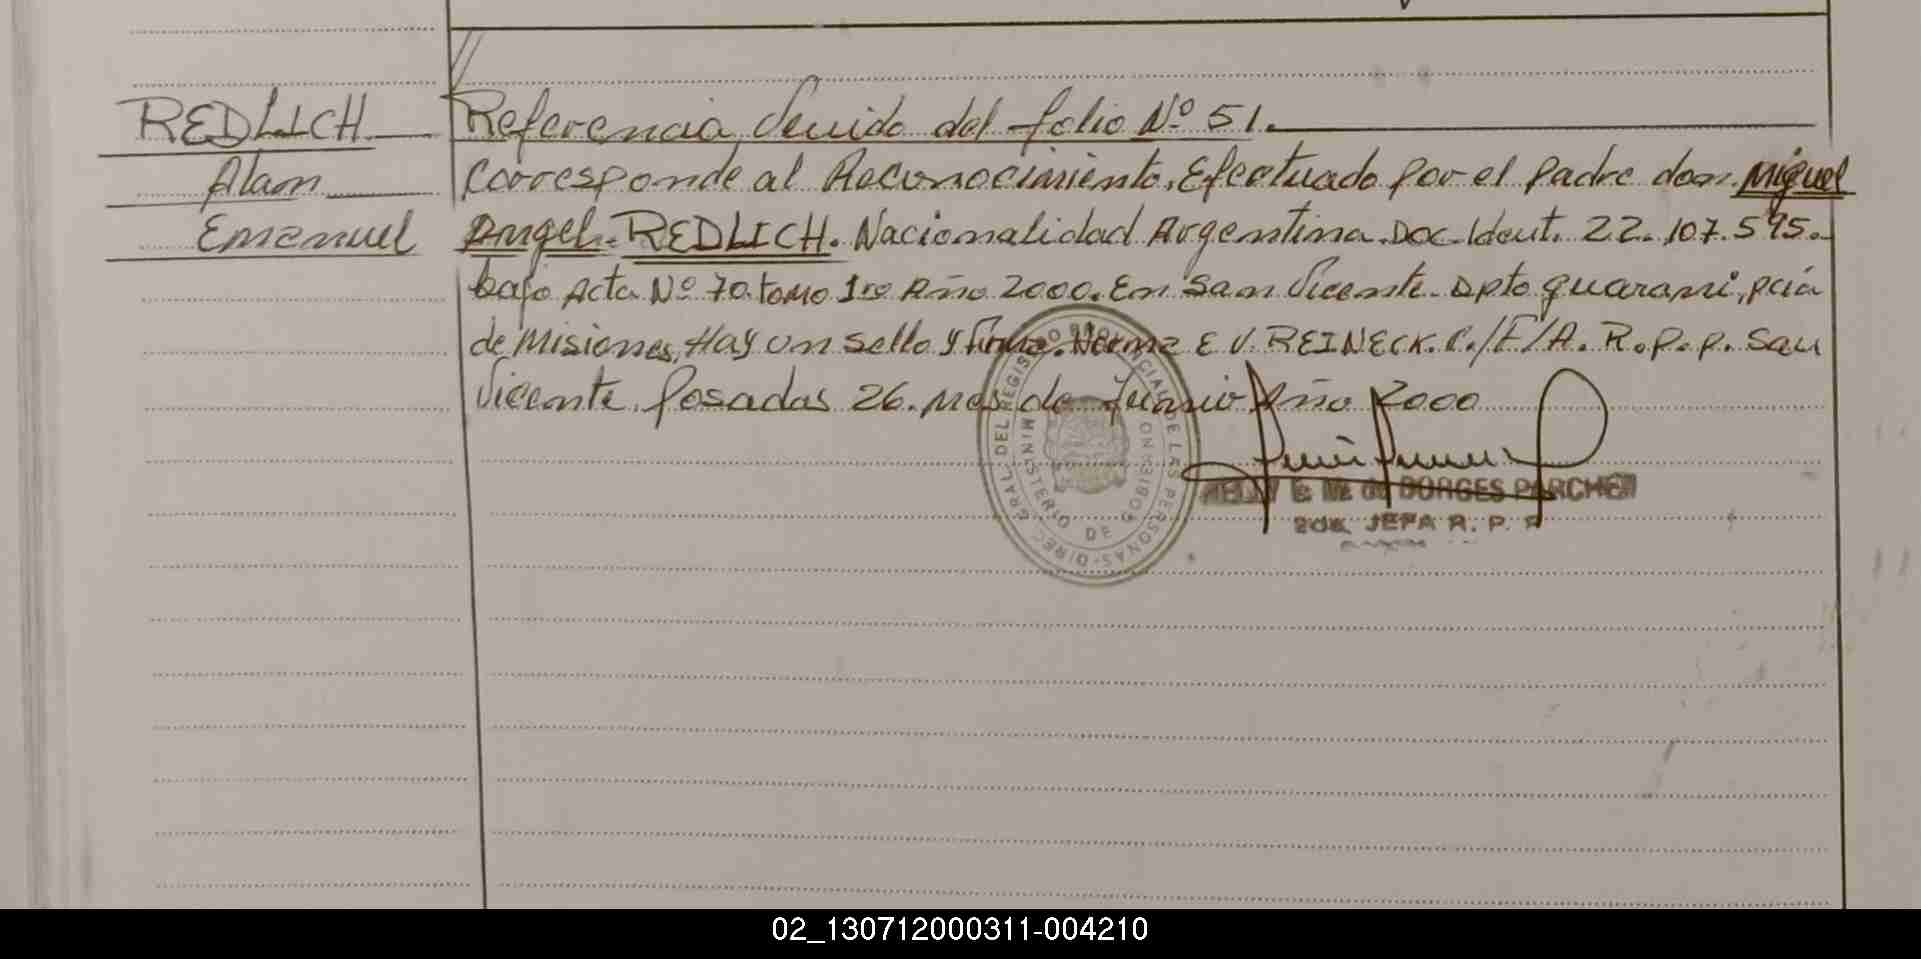 REDLICH
Alam
Emanuel
Referencia Venido del folio Nº 51.
Corresponde al Reconocimiento, Efectuado por el padre don. Miguel
Angel. REDLICH. Nacionalidad Argentina. Doc. Ident. 22.107.595.
bajo Acta Nº 70. tomo 1ro Año 2000. En San Vicente. Dpto guarani, pcia
de Misiones, Hay un sello y firma. Norma E V. REINECK. C./F/A. R.P.P. San
Vicente. Posadas 26. mes de Junio Año 2000
DIREC. GRAL. DEL REGISTRO PROVINCIAL DE LAS PERSONAS
MINISTERIO DE GOBIERNO
DE BORGES PARCHEN
JEFA R. P. P
02_130712000311-004210